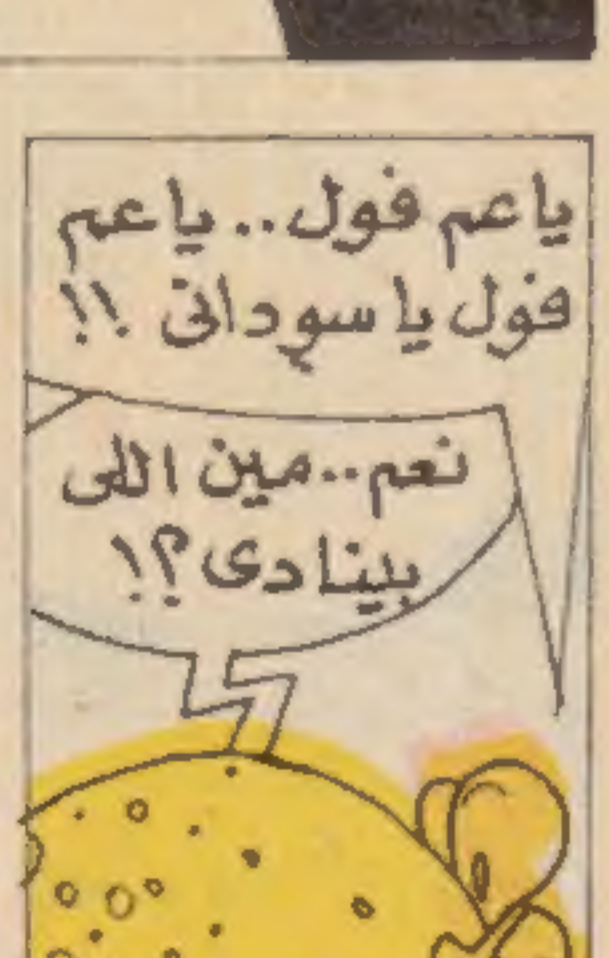 ياعم فول.. ياعم
فول يا سودانى !!
نعم.. مين اللى
بينادى؟!